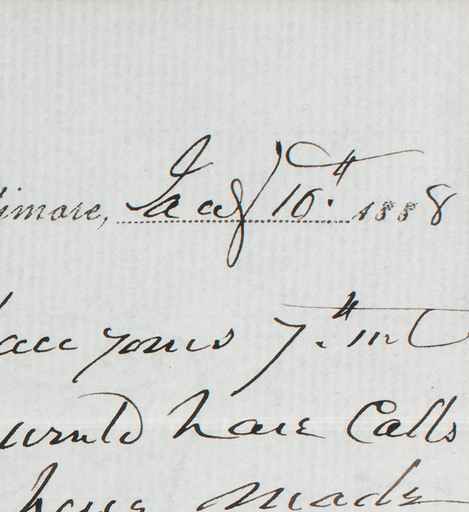 timore, Jany 10th 1888
have yours 7th inst
would have Calls
have made